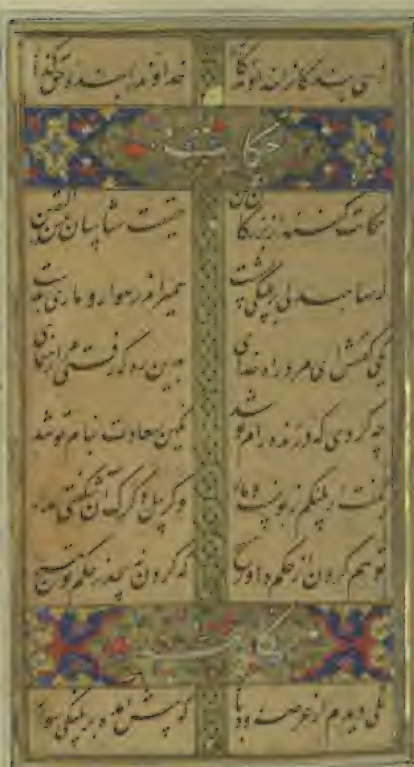 زهی بندکانرا خداوندکار خداوند را بنده حق کذار
حکایت
حکایت کنند از بزرکان دین حقیقت شناسان عین الیقین
که صاحبدلی بر پلنکی نشست همیراند رهوار و ماری بدست
یکی کفتش ای مرد راه خدای بدین ره که رفتی مرا رهنمای
چه کردی که درنده رام تو شد نکین سعادت بنام تو شد
بکفت ار پلنکم زبونست و مار وکر پیل و کرک آن شکفتی مدار
تو هم کردن از حکم داور مپیچ که کردن نپیچد ز حکم تو هیچ
حکایت
یکی دیدم از عرصه رودبار که پیش آمدم بر پلنکی سوار